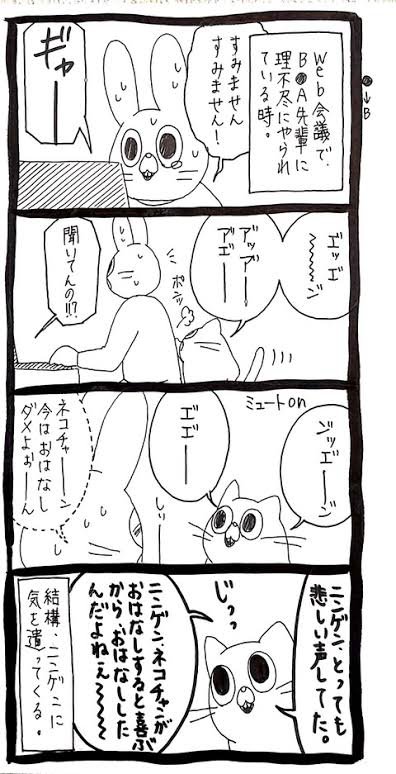 Web会議で、
B●A先輩に
理不尽にやられ
ている時。
●→B
すみません
すみません!
ギャー
エッエ〜〜〜ジ
アッアー
アエー
ポンッ
聞いてんの!!?
ジッエーン
ミュートon
エエー
しーっ
ネコチャーン
今はおはなし
ダメよぉーん
ニンゲン、とっても
悲しい声してた。
じっっ
ニンゲン、ネコチャンが
おはなしすると喜ぶ
から、おはなしした
んだよねぇ〜〜〜
結構、ニンゲンに
気を遣ってくる。